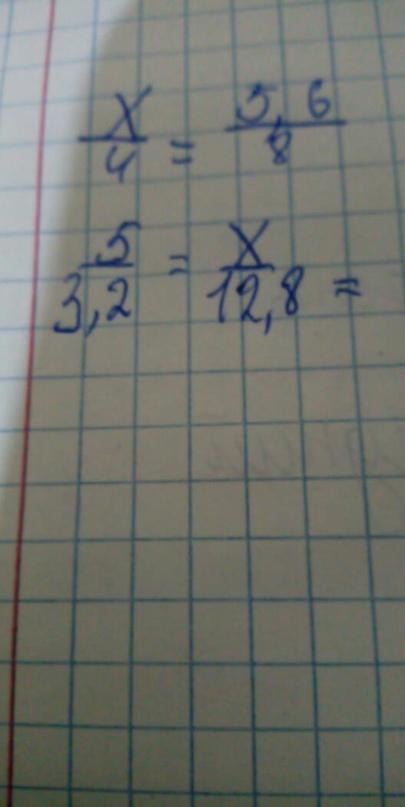 X/4 = 5,6/8
5/3,2 = X/12,8 =